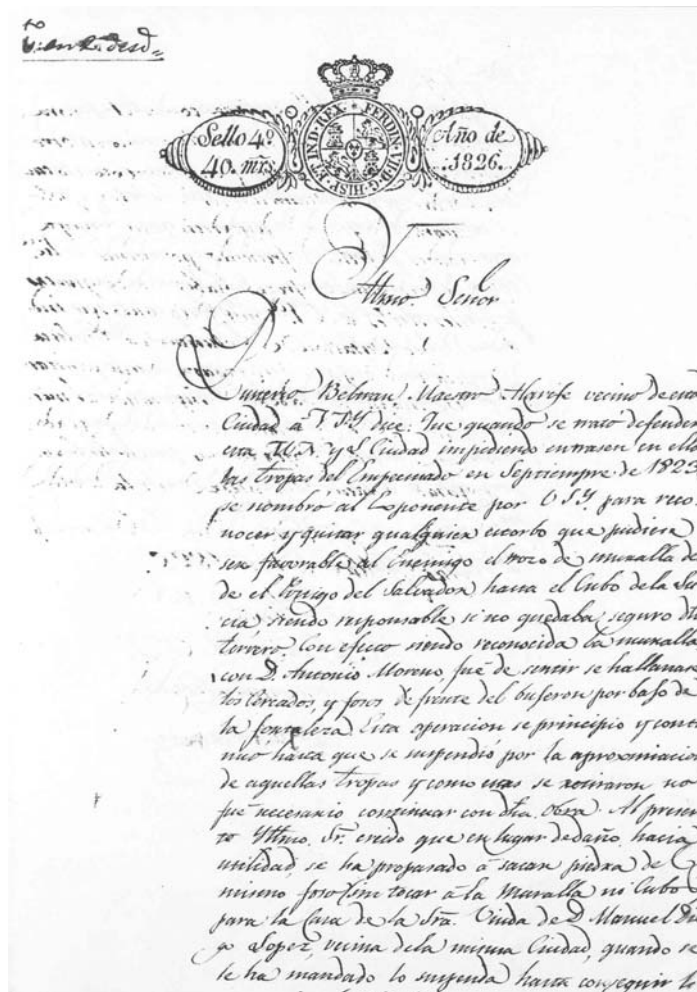 Sello 4º
40. mrs
FERDIN. VII. D. G. HISP. ET IND. REX
Año de
1826.
Yttmo. Señor
Beltran Maestro Alarife vecino de esta
Ciudad à V.S.Y. dice: Que quando se trató defender
esta M.N. y L. Ciudad impidiendo entrasen en ella
las tropas del Empecinado en Septiembre de 1823
se nombró al Exponente por V.S.Y. para reco-
nocer y quitar qualquier estorbo que pudiera
ser favorable al Enemigo el trozo de muralla des
de el Postigo del Salvador hasta el Cubo de la
siendo responsable si no quedaba seguro
Con efecto siendo reconocida la muralla
con D. Antonio Moreno, fué de sentir se hallanaren
los Cercados, y fosos de frente del por bajo de
la fortaleza Esta operacion se principio y conti
nuó hasta que se suspendió por la aproximacion
de aquellas tropas y como estas se retiraron no
fué necesario continuar con dha. obra. Al presen
te Yttmo. Sr. creido que en lugar de daño hacia
utilidad, se ha propasado à sacar piedra de
mismo foso sin tocar à la Muralla ni Cubo
para la Casa de la Sra. Viuda de D. Manuel
Lopez, vecina de la misma Ciudad, quando se
le ha mandado lo suspenda hasta conseguir